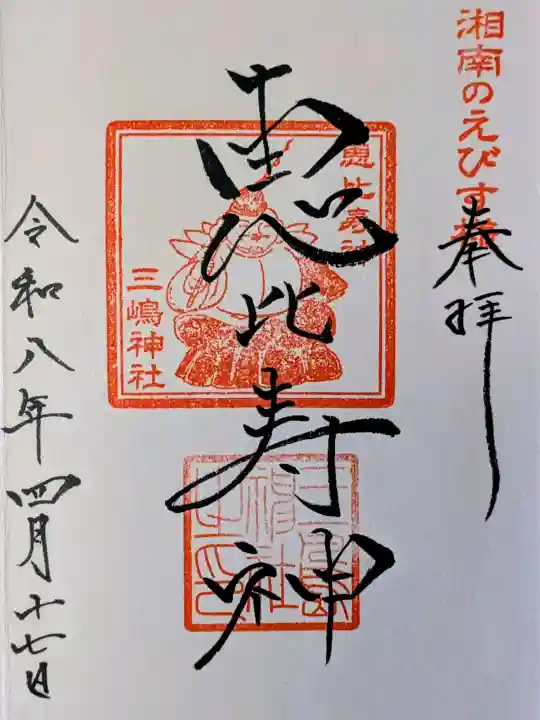 湘南のえびす様
奉拝
恵比寿神
恵比寿社
三嶋神社
三嶋神社之印
令和八年四月十七日